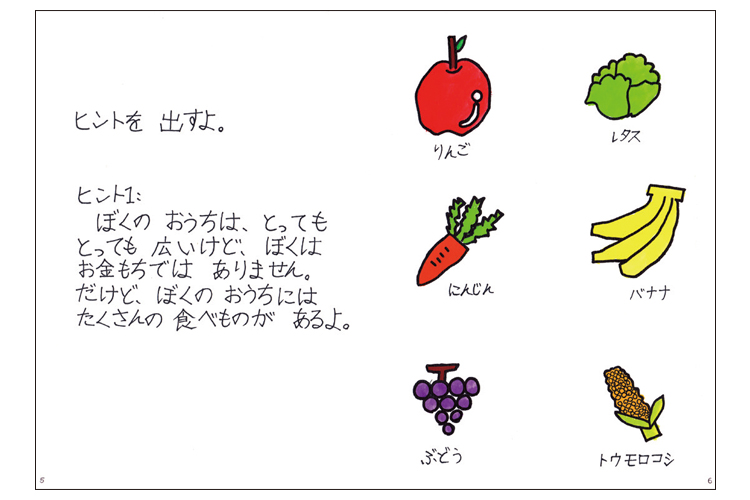 ヒントを 出すよ。
ヒント1:
ぼくの おうちは、とっても
とっても 広いけど、ぼくは
お金もちでは ありません。
だけど、ぼくの おうちには
たくさんの 食べものが あるよ。
5
りんご
レタス
にんじん
バナナ
ぶどう
トウモロコシ
6